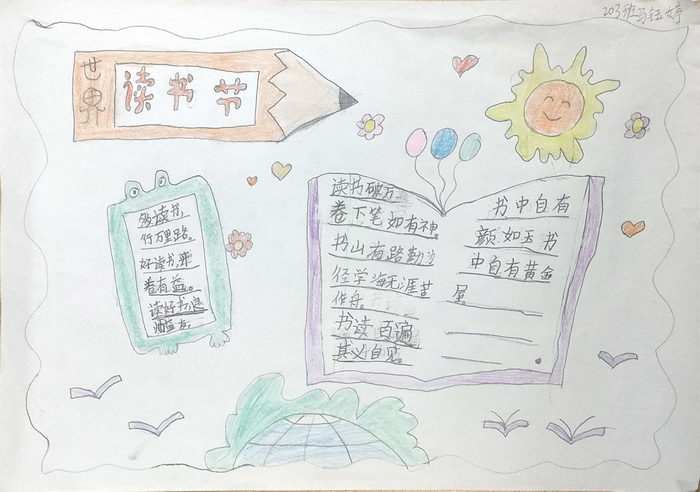 203班马钰婷
世界
读书节
多读书
行万里路。
好读书开
卷有益。
读好书
读书破万
卷下笔如有神
书山有路勤
径学海无涯苦
作舟
书读百遍
其义自见
书中自有
颜如玉书
中自有黄金
屋